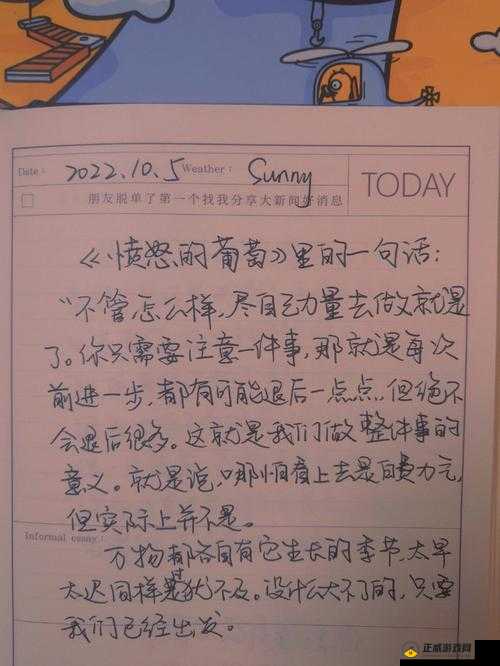 Date: 2022.10.5 Weather: Sunny
朋友脱单了第一个找我分享大新闻好消息
TODAY
《愤怒的葡萄》里的一句话:
“不管怎么样,尽自己力量去做就是
了。你只需要注意一件事,那就是每次
前进一步,都有可能退后一点点,但绝不
会退后很多。这就是我们做整件事的
意义。就是说,哪怕看上去是白费力气,
但实际上并不是。
Informal essay:
万物都各自有它生长的季节,太早
太迟同样是过犹不及。没什么大不了的,只要
我们已经出发。
正威游戏网